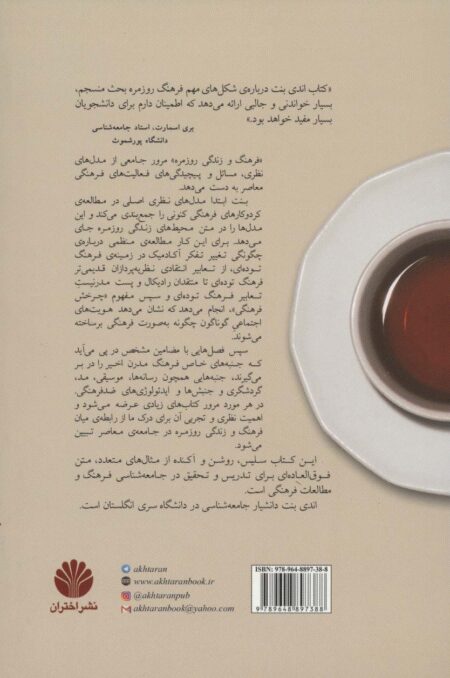 «کتاب اندی بنت درباره‌ی شکل‌های مهم فرهنگ روزمره بحث منسجم،
بسیار خواندنی و جالبی ارائه می‌دهد که اطمینان دارم برای دانشجویان
بسیار مفید خواهد بود.»
بری اسمارت، استاد جامعه‌شناسی
دانشگاه پورشموث
«فرهنگ و زندگی روزمره» مرور جامعی از مدل‌های
نظری، مسائل و پیچیدگی‌های فعالیت‌های فرهنگی
معاصر به دست می‌دهد.
بنت ابتدا مدل‌های نظری اصلی در مطالعه‌ی
کردوکارهای فرهنگی کنونی را جمع‌بندی می‌کند و این
مدل‌ها را در متن محیط‌های زندگی روزمره جای
می‌دهد. برای این کار مطالعه‌ی منظمی درباره‌ی
چگونگی تغییر تفکر آکادمیک در زمینه‌ی فرهنگ
توده‌ای، از تعابیر انتقادی نظریه‌پردازان قدیمی‌تر
فرهنگ توده‌ای تا منتقدان رادیکال و پست مدرنیستِ
تعابیر فرهنگ توده‌ای و سپس مفهوم «چرخش
فرهنگی»، انجام می‌دهد که نشان می‌دهد هویت‌های
اجتماعی گوناگون چگونه به‌صورت فرهنگی برساخته
می‌شوند.
سپس فصل‌هایی با مضامین مشخص در پی می‌آید
که جنبه‌های خاص فرهنگ مدرن اخیر را در بر
می‌گیرند، جنبه‌هایی همچون رسانه‌ها، موسیقی، مد،
گردشگری و جنبش‌ها و ایدئولوژی‌های ضدفرهنگی.
در هر مورد مرور کتاب‌های زیادی عرضه می‌شود و
اهمیت نظری و تجربی آن برای درک ما از رابطه‌ی میان
فرهنگ و زندگی روزمره در جامعه‌ی معاصر تبیین
می‌شود.
این کتاب سلیس، روشن و آکنده از مثال‌های متعدد، متن
فوق‌العاده‌ای برای تدریس و تحقیق در جامعه‌شناسی فرهنگ و
مطالعات فرهنگی است.
اندی بنت دانشیار جامعه‌شناسی در دانشگاه سری انگلستان است.
نشر اختران
akhtaran
www.akhtaranbook.ir
@akhtaranpub
akhtaranbook@yahoo.com
ISBN: 978-964-8897-38-8
9 789648 897388